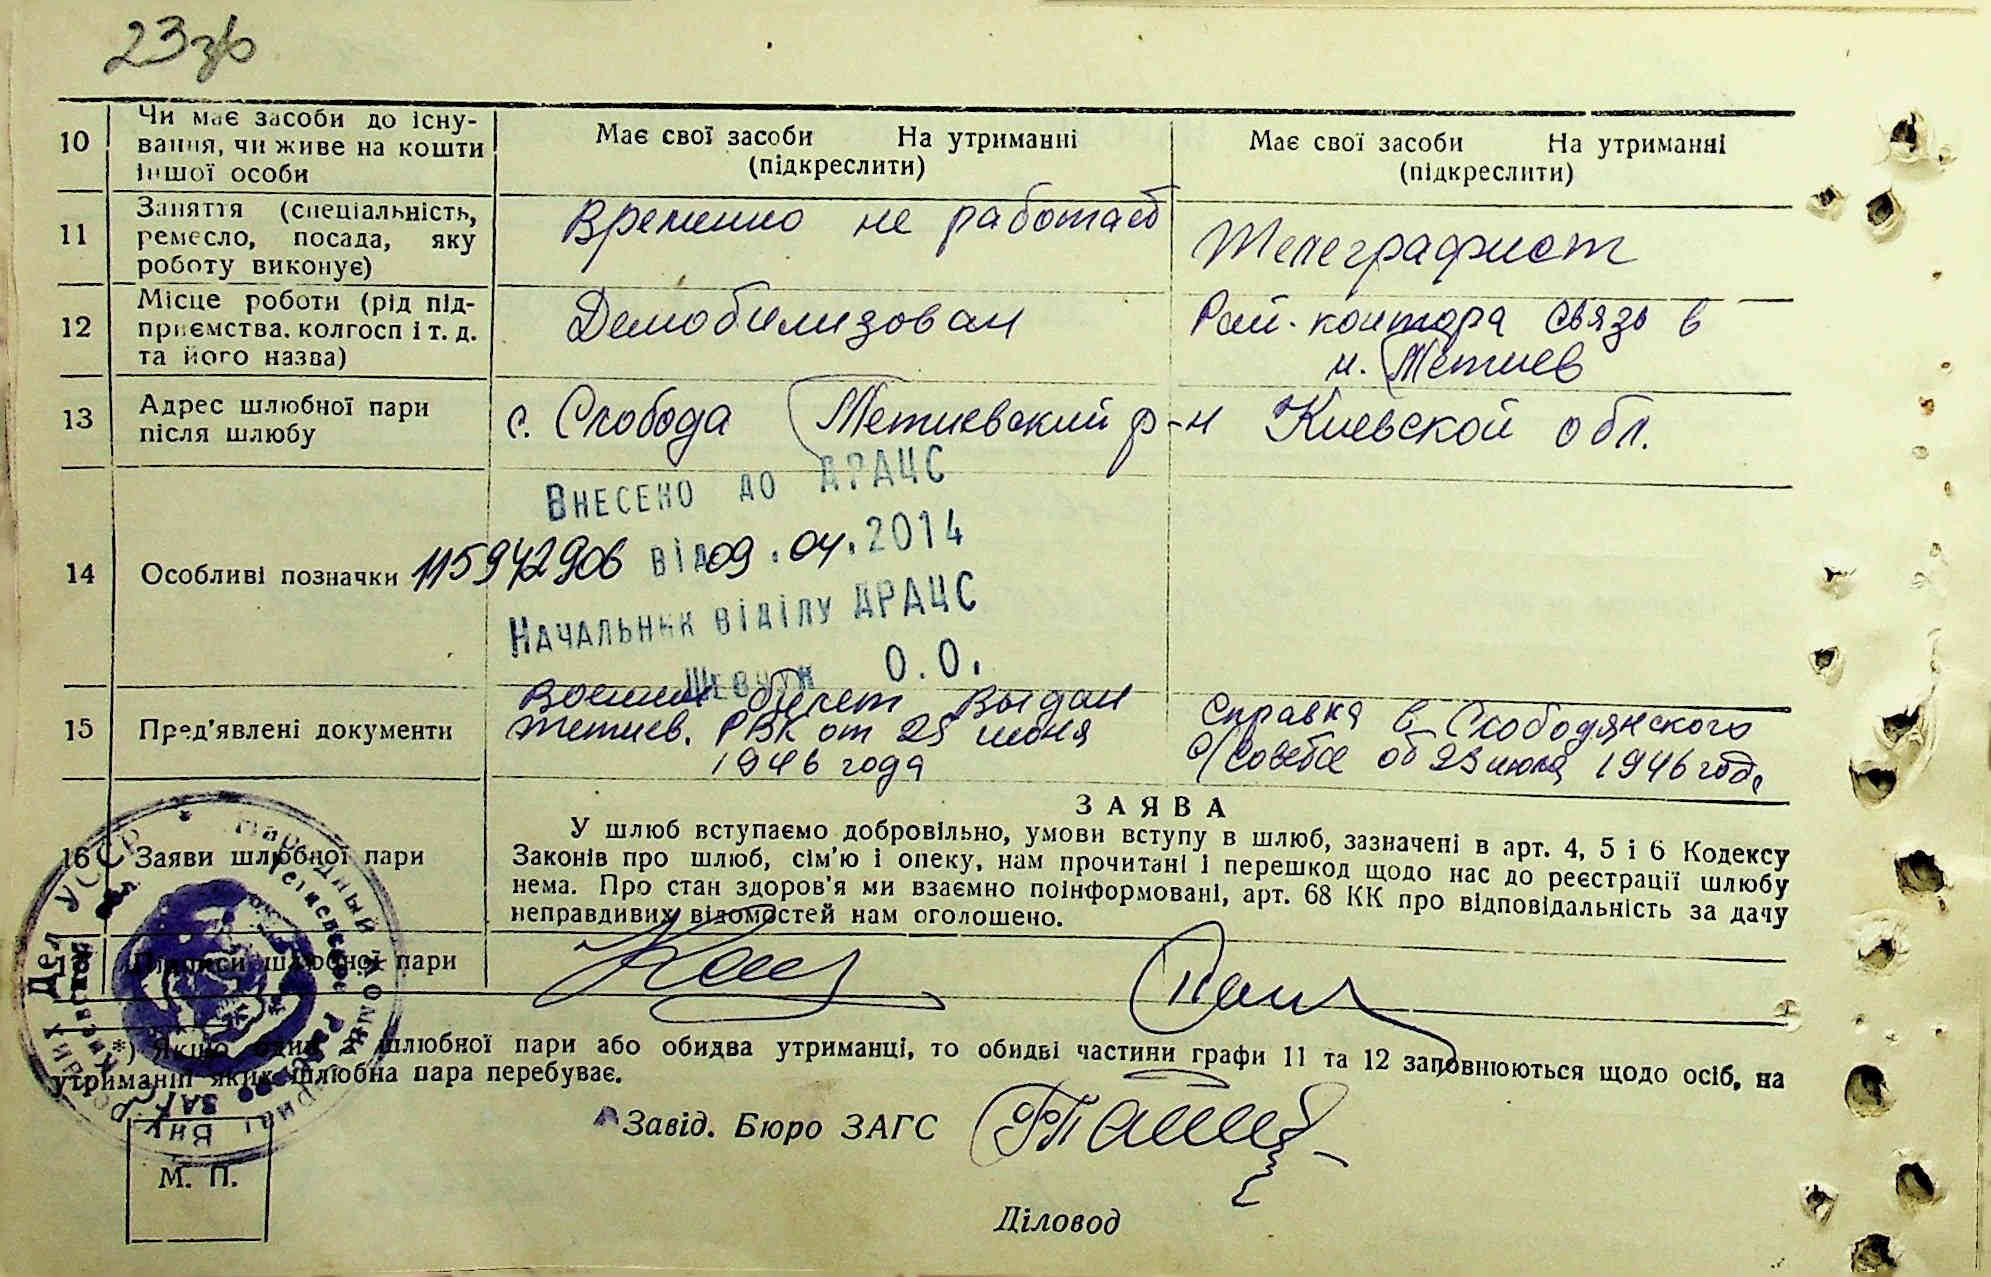 23зв
10 Чи має засоби до існу-
вання, чи живе на кошти
іншої особи
Має свої засоби На утриманні
(підкреслити)
Має свої засоби На утриманні
(підкреслити)
11 Заняття (спеціальність,
ремесло, посада, яку
роботу виконує)
Временно не работает
Телеграфист
12 Місце роботи (рід під-
приємства, колгосп і т. д.
та його назва)
Демобилизован
Рай. контора связь в
м. Тетиев
13 Адрес шлюбної пари
після шлюбу
с. Слобода Тетиевский р-н Киевской обл.
14 Особливі позначки
Внесено до ДРАЦС
115942906 від 09.04.2014
Начальник відділу ДРАЦС
Шевчук О.О.
15 Пред'явлені документи
Военный билет выдан
Тетиев. РВК от 25 июня
1946 года
Справка в Слободянского
с/совета от 23 июля 1946 год.
16 Заяви шлюбної пари
ЗАЯВА
У шлюб вступаємо добровільно, умови вступу в шлюб, зазначені в арт. 4, 5 і 6 Кодексу
Законів про шлюб, сім'ю і опеку, нам прочитані і перешкод щодо нас до реєстрації шлюбу
нема. Про стан здоров'я ми взаємно поінформовані, арт. 68 КК про відповідальність за дачу
неправдивих відомостей нам оголошено.
17 Підписи шлюбної пари
*) Якщо один з шлюбної пари або обидва утриманці, то обидві частини графи 11 та 12 заповнюються щодо осіб, на
утриманні яких шлюбна пара перебуває.
Завід. Бюро ЗАГС
М. П.
Діловод